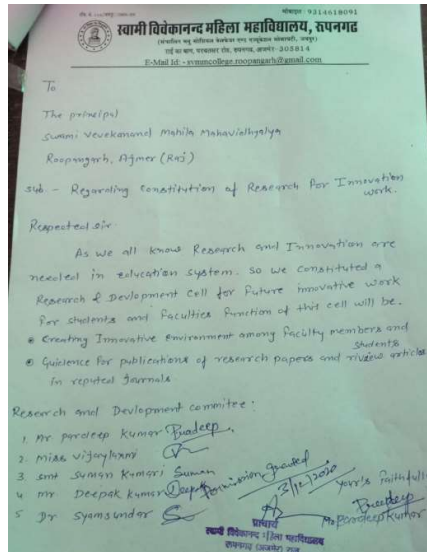 मोबाइल- 9314618091
स्वामी विवेकानन्द महिला महाविद्यालय, रूपनगढ़
राई का बाग, परबतसर रोड, रूपनगढ़, अजमेर-305814
E-Mail Id: - svmmcollege.roopangarh@gmail.com
To
The principal
Swami Vevekanand Mahila Mahavidhyalya
Roopangarh, Ajmer (Raj)
Sub - Regarding Constitution of Research For Innovation
work.
Respected sir
As we all know Research and Innovation are
needed in education system. so we constituted a
Research & Devlopment Cell for future innovative work
for students and faculties function of this cell will be.
Creating Innovative Environment among Faculty members and
students
Guidence for publications of research papers and riview articles
in reputed Journals
Research and Devlopment commitee:
1. Mr pardeep Kumar Pradeep
2. Miss vijaylaxmi
3 smt suman Kumari Suman
4 mr Deepak Kumar Deepak
5 Dr Syamsundar
Permission granted
3/12/2020
Your's faithfull
Pradeep
Mr. Pardeep Kumar
प्राचार्य
स्वामी विवेकानन्द महिला महाविद्यालय
रूपनगढ़ (अजमेर) राज.